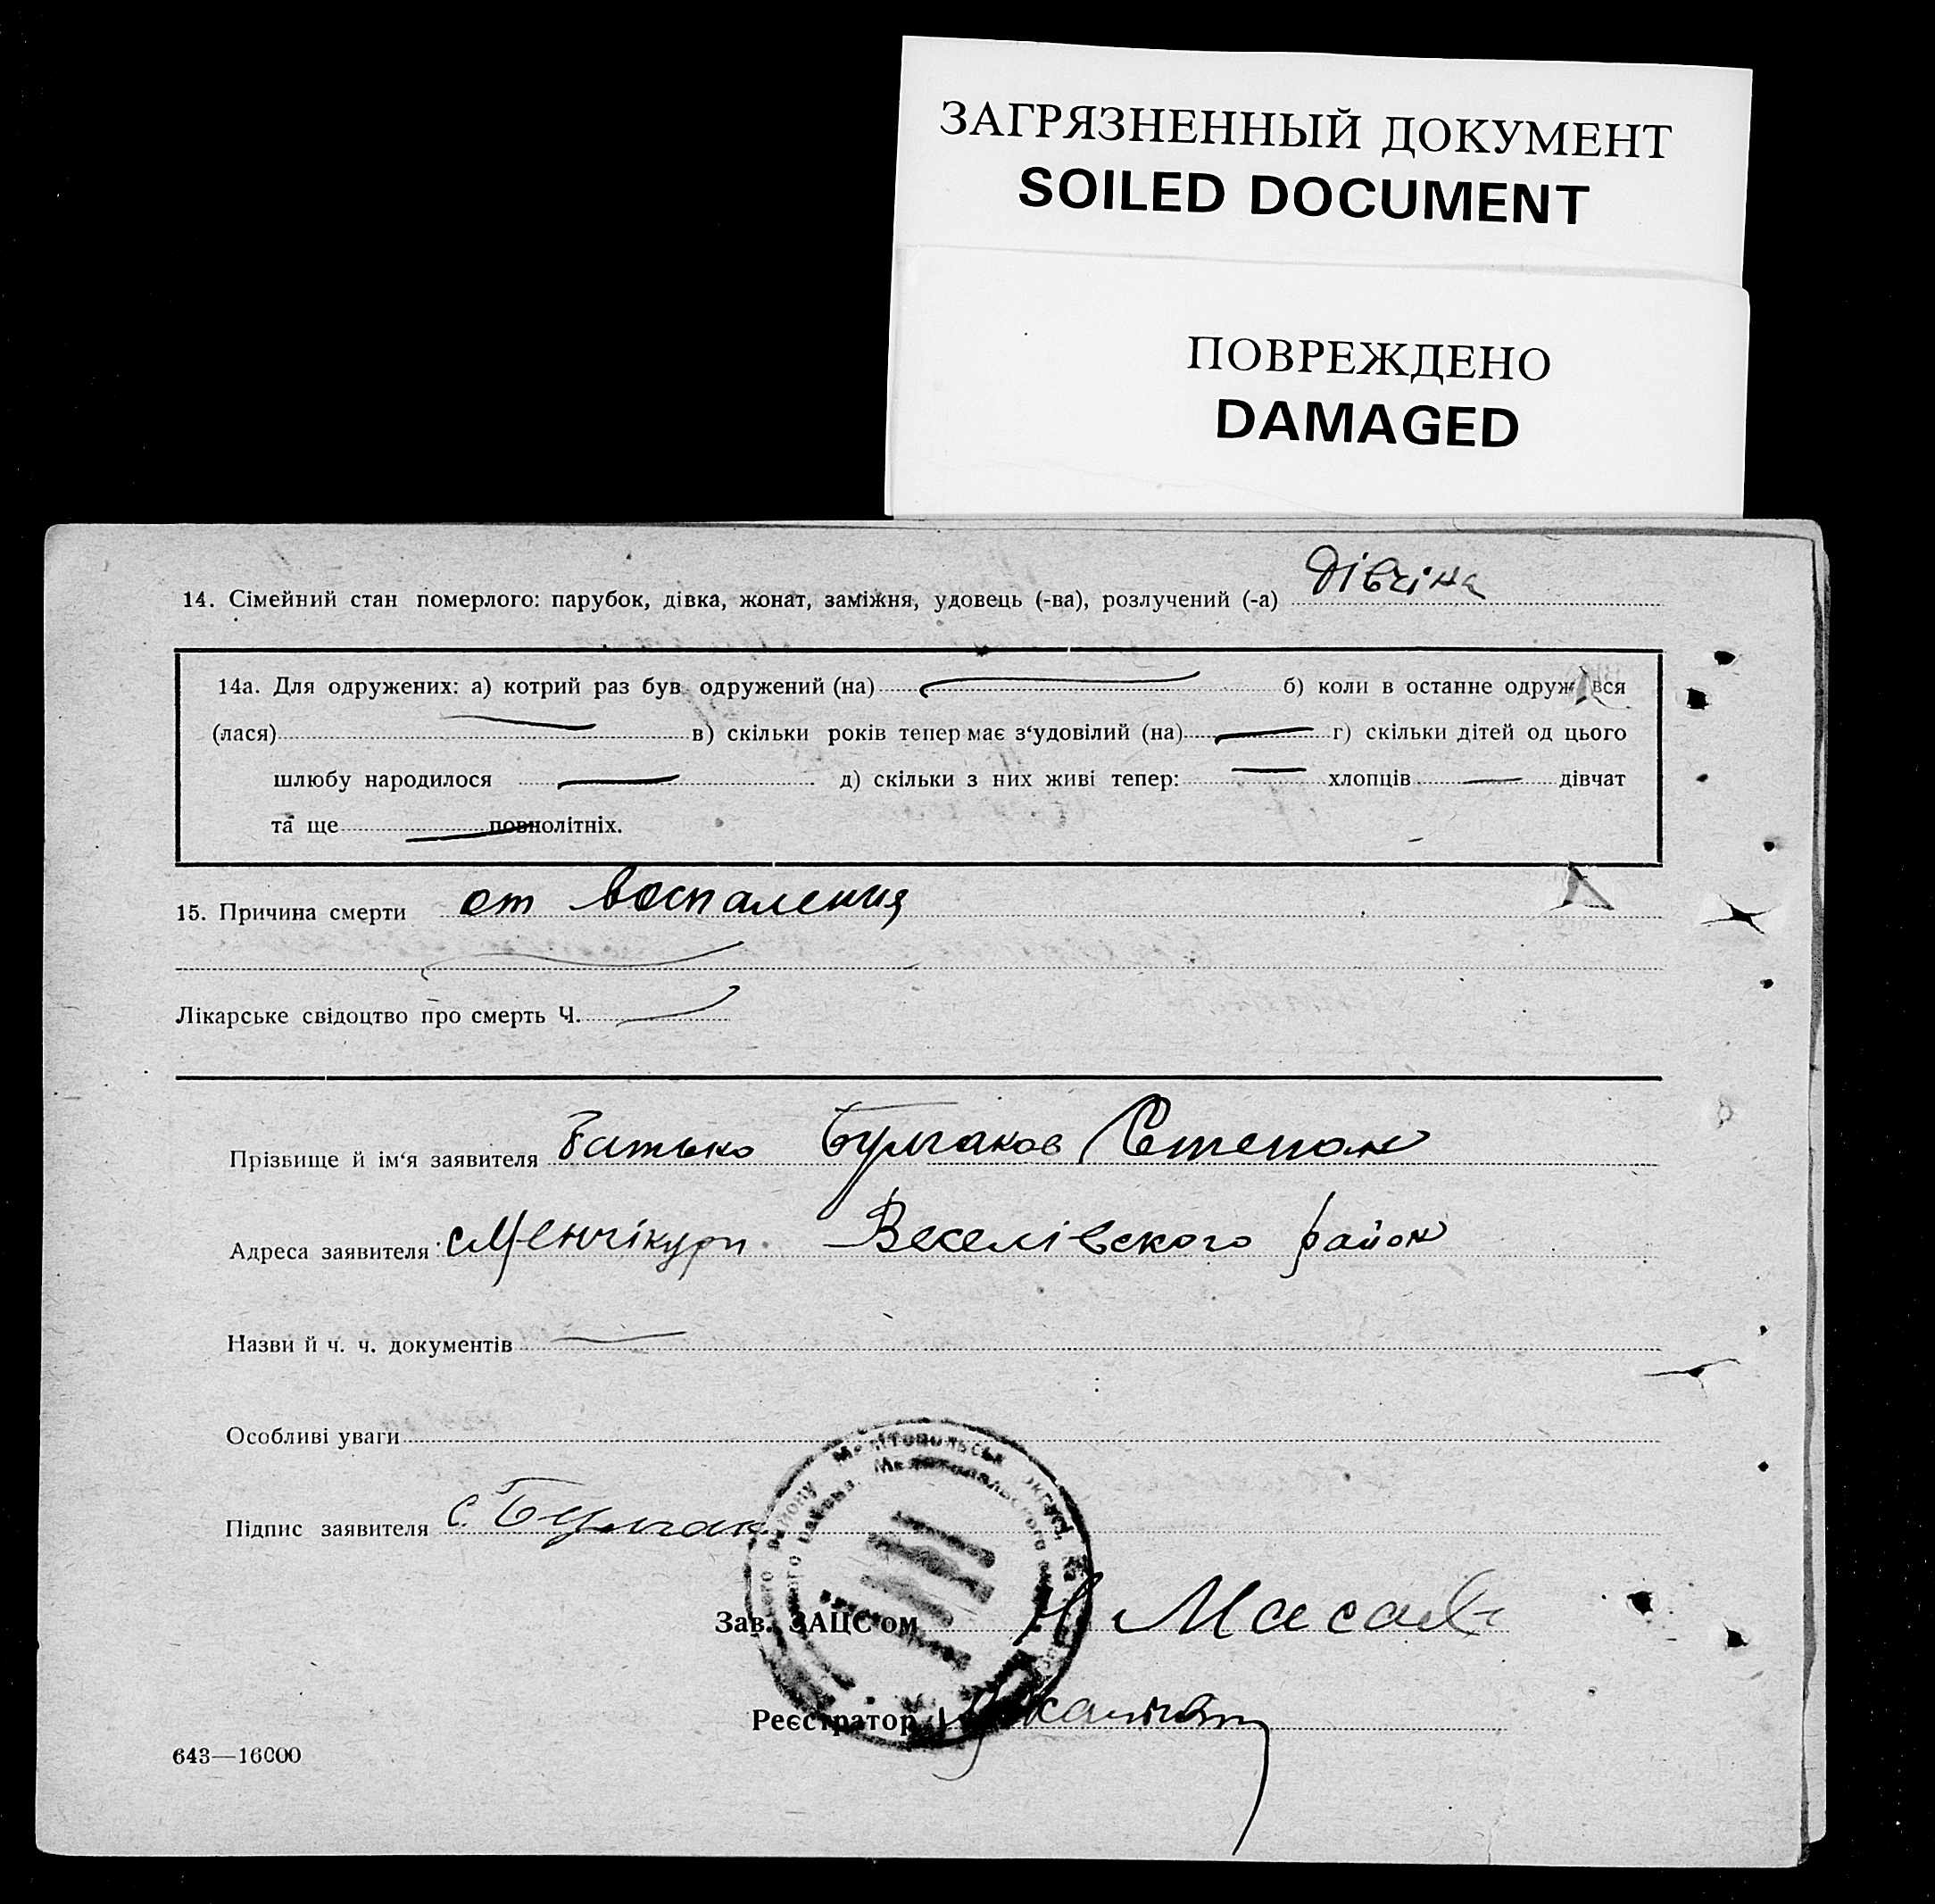 ЗАГРЯЗНЕННЫЙ ДОКУМЕНТ
SOILED DOCUMENT
ПОВРЕЖДЕНО
DAMAGED
14. Сімейний стан померлого: парубок, дівка, жонат, заміжня, удовець (-ва), розлучений (-а) дівчіна
14а. Для одружених: а) котрий раз був одружений (на) б) коли в останне одружився
(лася) в) скільки років тепер має з'удовілий (на) г) скільки дітей од цього
шлюбу народилося д) скільки з них живі тепер: хлопців дівчат
та ще повнолітніх.
15. Причина смерти от воспаления
Лікарське свідоцтво про смерть Ч.
Прізвище й ім'я заявителя батько Булгаков Степан
Адреса заявителя с Менчікури Веселівского район
Назви й ч. ч. документів
Особливі уваги
Підпис заявителя С. Булгак
Зав. ЗАЦС'ом
Реєстратор
643—16000